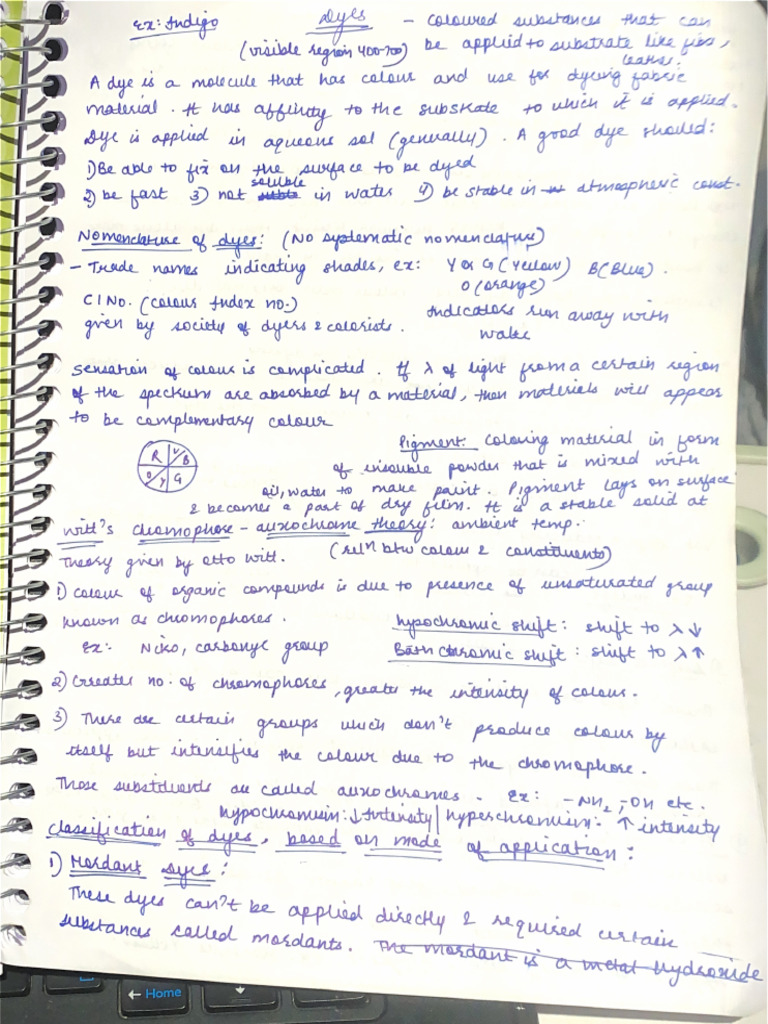 Ex: Indigo Dyes - coloured substances that can
(visible region 400-700) be applied to substrate like fibs,
leather.
A dye is a molecule that has colour and use for dyeing fabric
material. It has affinity to the substrate to which it is applied.
Dye is applied in aqueous sol (generally). A good dye should:
1) Be able to fix on the surface to be dyed
2) be fast 3) not soluble in water 4) be stable in atmospheric const.
Nomenclature of dyes: (No systematic nomenclature)
- Trade names indicating shades, ex: Y or G (Yellow) B(Blue).
O (orange)
CI No. (colour Index no.)
given by society of dyers & colorists.
Indicators run away with
water
Sensation of colour is complicated. If λ of light from a certain region
of the spectrum are absorbed by a material, then materials will appear
to be complementary colour
R V B O Y G
Pigment: Coloring material in form
of insouble powder that is mixed with
oil, water to make paint. Pigment lays on surface
& becomes a part of dry film. It is a stable solid at
ambient temp.
Witt's chromophore - auxochrome theory:
Theory given by otto witt. (reln btw colour & constituents)
1) Colour of organic compounds is due to presence of unsaturated group
known as chromophores.
Ex: Nitro, carbonyl group
hypochromic shift: shift to λ ↓
Bathochromic shift: shift to λ ↑
2) Greater no. of chromophores, greater the intensity of colour.
3) There are certain groups which don't produce colour by
itself but intensifies the colour due to the chromophore.
Those substituents are called auxochromes. Ex: -NH2, -OH etc.
hypochromism: ↓ Intensity | hyperchromism: ↑ intensity
Classification of dyes, based on mode of application:
1) Mordant Dyes:
These dyes can't be applied directly & required certain
substances called mordants. The mordant is a metal hydroxide